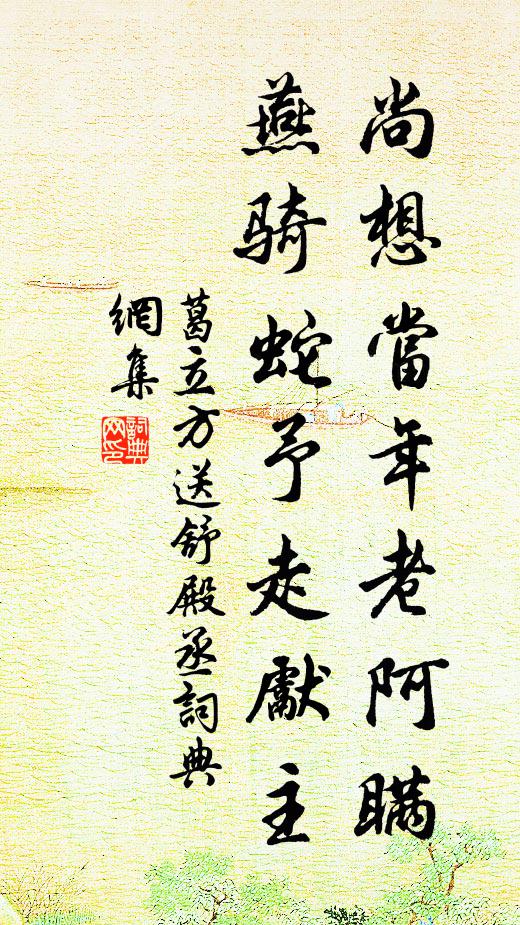 尚想當年老阿瞞
燕騎蛇予走獻主
葛立方送舒殿丞詞典
網集
詞典
网印